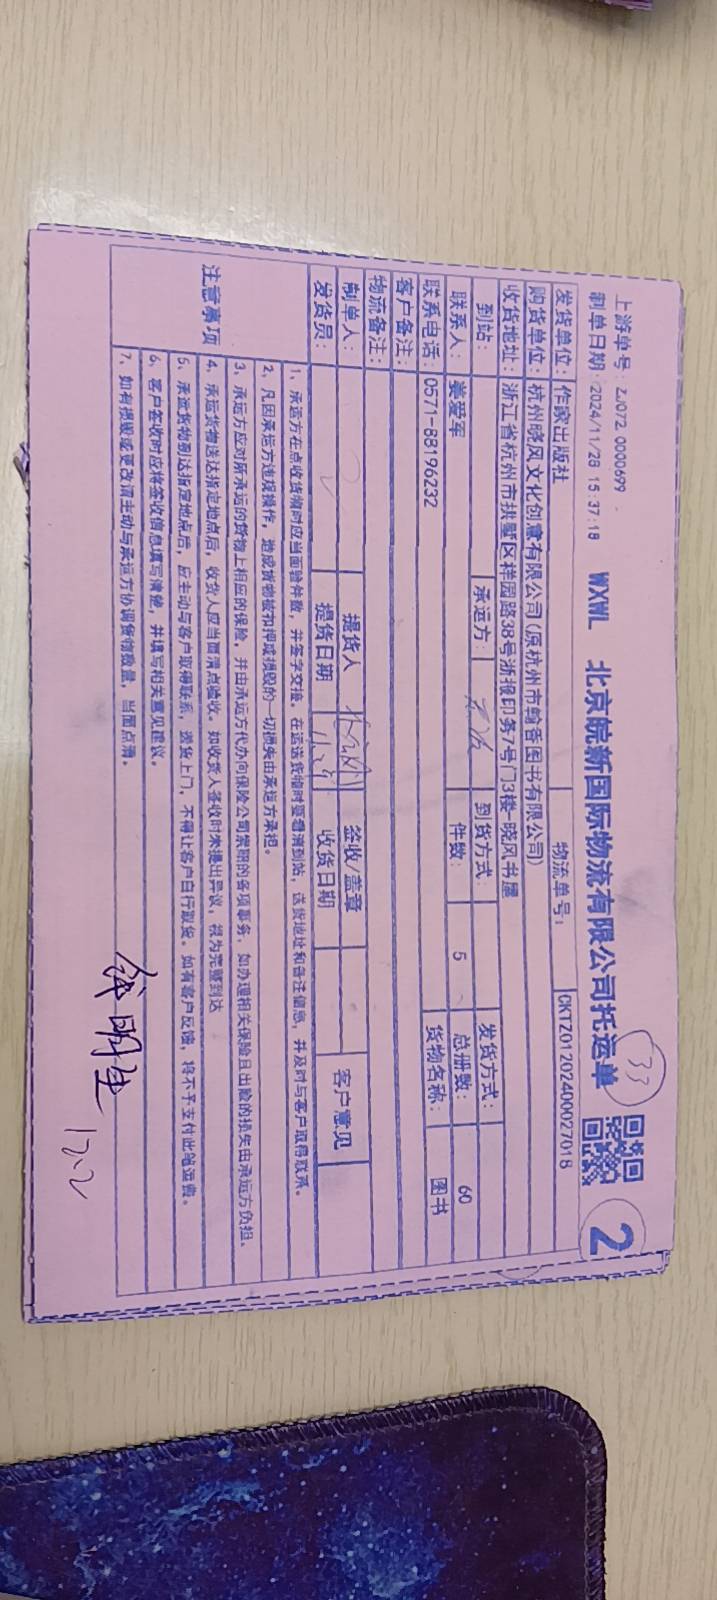 上游单号：ZJ072 0000699
制单日期：2024/11/28 15:37:18
WXWL 北京皖新国际物流有限公司托运单
33
2
发货单位：作家出版社 物流单号： CKTZ0120240002701B
购货单位：杭州晓风文化创意有限公司(原杭州市翰香图书有限公司)
收货地址：浙江省杭州市拱墅区祥园路38号浙报印务7号门3楼-晓风书屋
到站： 承运方： 到货方式： 发货方式：
联系人：姜爱军 件数： 5 总册数： 60
联系电话：0571-88196232 货物名称： 图书
客户备注：
物流备注：
制单人： 提货人 签收/盖章 客户意见
发货员： 提货日期 收货日期
注意事项
1、承运方在点收货物时应当面验件数，并签字交接。在运送货物时要看清到站，送货地址和备注信息，并及时与客户取得联系。
2、凡因承运方违规操作，造成货物被扣押或损毁的一切损失由承运方承担。
3、承运方应对所承运的货物上相应的保险，并由承运方代办向保险公司索赔的各项事务，如办理相关保险且出险的损失由承运方负担。
4、承运货物送达指定地点后，收货人应当面清点验收。如收货人签收时未提出异议，视为完整到达
5、承运货物到达指定地点后，应主动与客户取得联系，送货上门，不得让客户自行取货。如有客户反馈，将不予支付此笔运费。
6、客户签收时应将签收信息填写清楚，并填写相关意见建议。
7、如有损毁或更改请主动与承运方协调货物数量，当面点清。
12.2